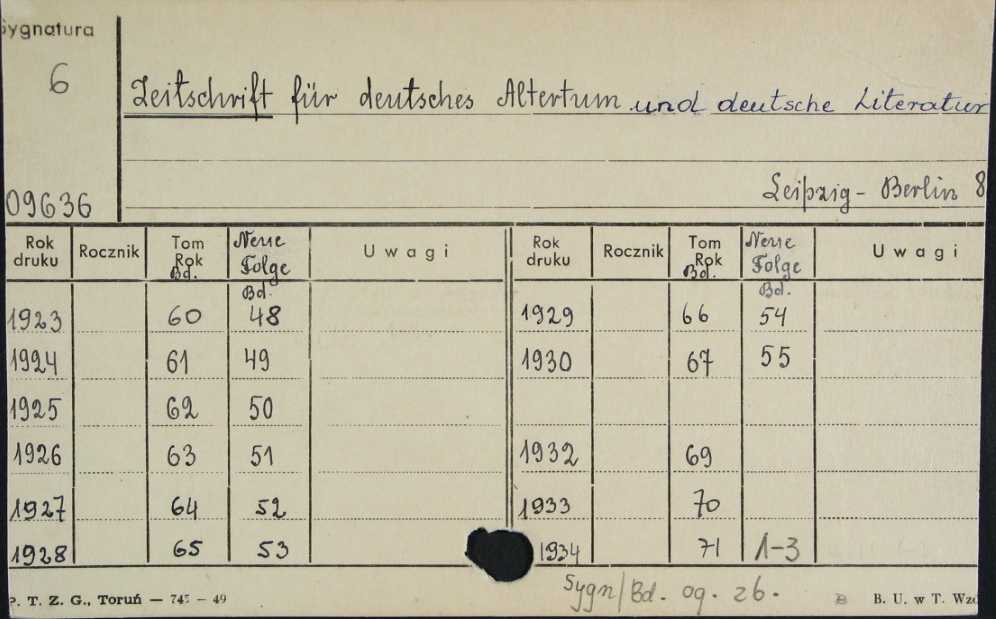 Sygnatura
6
Zeitschrift für deutsches Altertum und deutsche Literatur
Leipzig - Berlin 8
09636
Rok druku Rocznik Tom Rok Bd. Neue Folge Bd. Uwagi Rok druku Rocznik Tom Rok Bd. Neue Folge Bd. Uwagi
1923 60 48 1929 66 54
1924 61 49 1930 67 55
1925 62 50
1926 63 51 1932 69
1927 64 52 1933 70
1928 65 53 1934 71 1-3
Sygn/Bd. og. 26.
P. T. Z. G., Toruń — 745 — 49 B. U. w T. Wzó